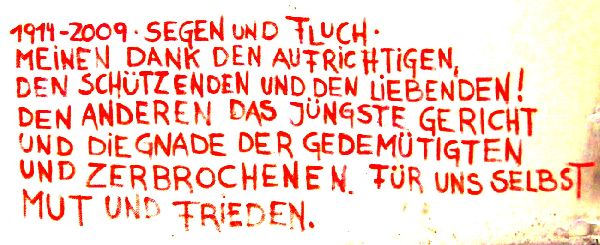 1914-2009 · SEGEN UND FLUCH ·
MEINEN DANK DEN AUFRICHTIGEN,
DEN SCHÜTZENDEN UND DEN LIEBENDEN!
DEN ANDEREN DAS JÜNGSTE GERICHT
UND DIE GNADE DER GEDEMÜTIGTEN
UND ZERBROCHENEN. FÜR UNS SELBST
MUT UND FRIEDEN.